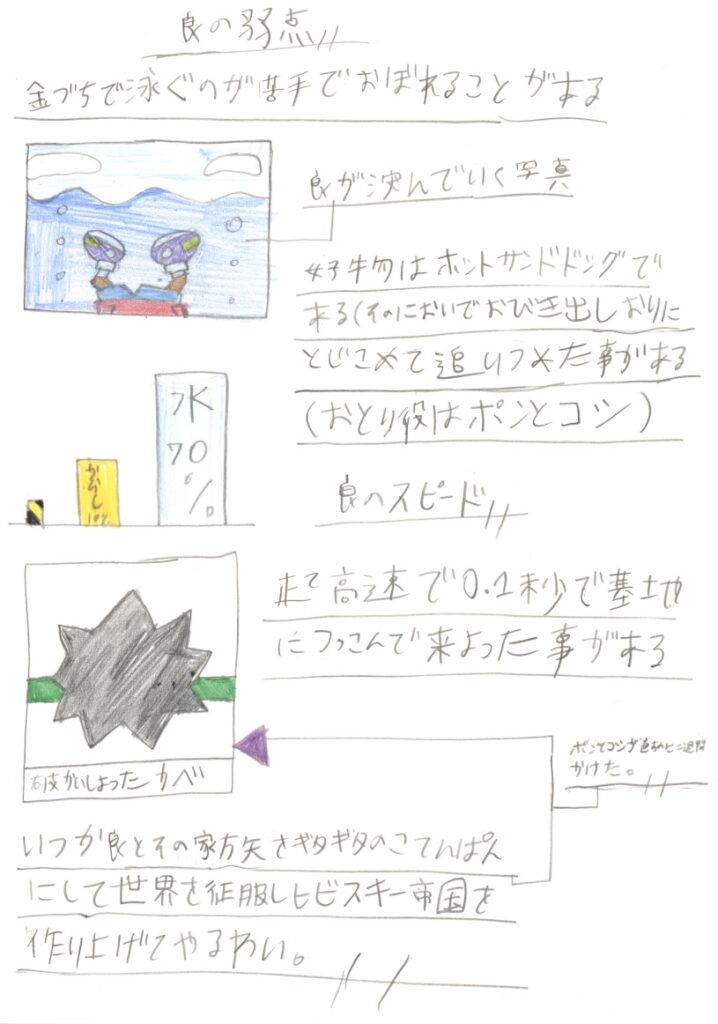 良の弱点
金づちで泳ぐのが苦手でおぼれることがある
良が沈んでいく写真
好物はホットサンドドッグで
ある(そのにおいでおびき出しおりに
とじこめて追いつめた事がある
(おとり役はポンとコン)
水
70
%
からし
10%
良のスピード
走て高速で0.1秒で基地
につっこんで来よった事がある
破かいしよったカベ
ポンとコンが直すのに二週間
かけた。
いつか良とその家方矢をギタギタのこてんぱん
にして世界を征服しヒビスキー帝国を
作り上げてやるわい。